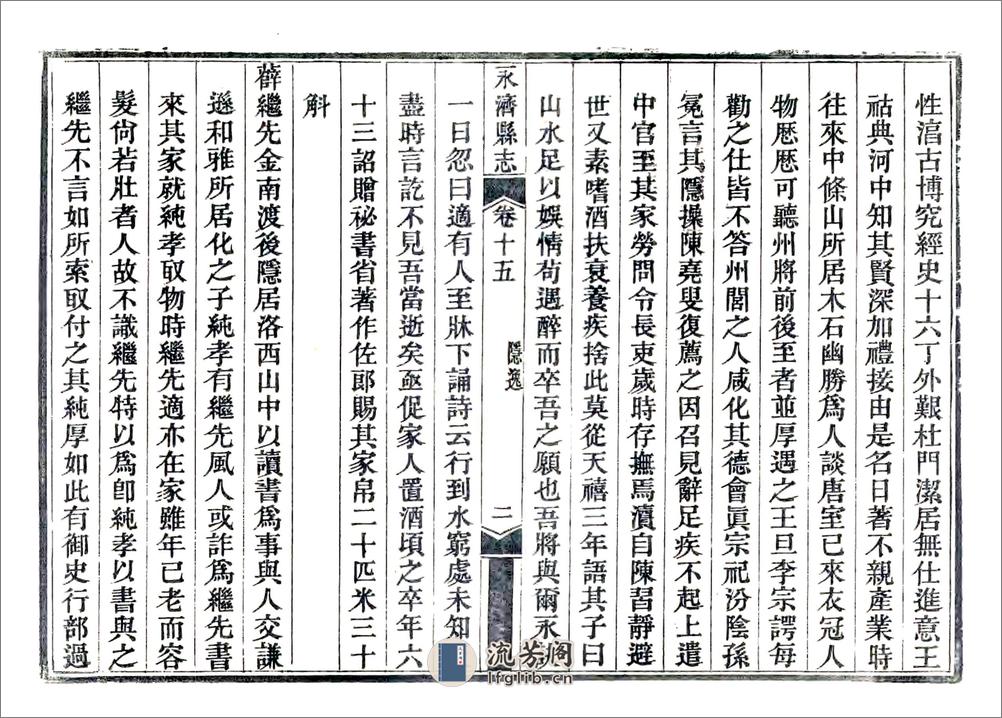 性㴠古博究經史十六丁外艱杜門潔居無仕進意王
祜典河中知其賢深加禮接由是名日著不親產業時
往來中條山所居木石幽勝爲人談唐室已來衣冠人
物歷歷可聽州將前後至者並厚遇之王旦李宗諤每
勸之仕皆不答州閭之人咸化其德會眞宗祀汾陰孫
冕言其隱操陳堯叟復薦之因召見辭足疾不起上遣
中官至其家勞問令長吏歲時存撫焉瀆自陳習靜避
世又素嗜酒扶衰養疾捨此莫從天禧三年語其子曰
山水足以娛情苟遇醉而卒吾之願也吾將與爾永
永濟縣志
卷十五
隱逸
二
一日忽曰適有人至牀下誦詩云行到水窮處未知
盡時言訖不見吾當逝矣亟促家人置酒頃之卒年六
十三詔贈祕書省著作佐郎賜其家帛二十匹米三十
斛
薛繼先金南渡後隱居洛西山中以讀書爲事與人交謙
遜和雅所居化之子純孝有繼先風人或詐爲繼先書
來其家就純孝取物時繼先適亦在家雖年已老而容
髮尙若壯者人故不識繼先特以爲卽純孝以書與之
繼先不言如所索取付之其純厚如此有御史行部過
流芳阁
lfglib.cn